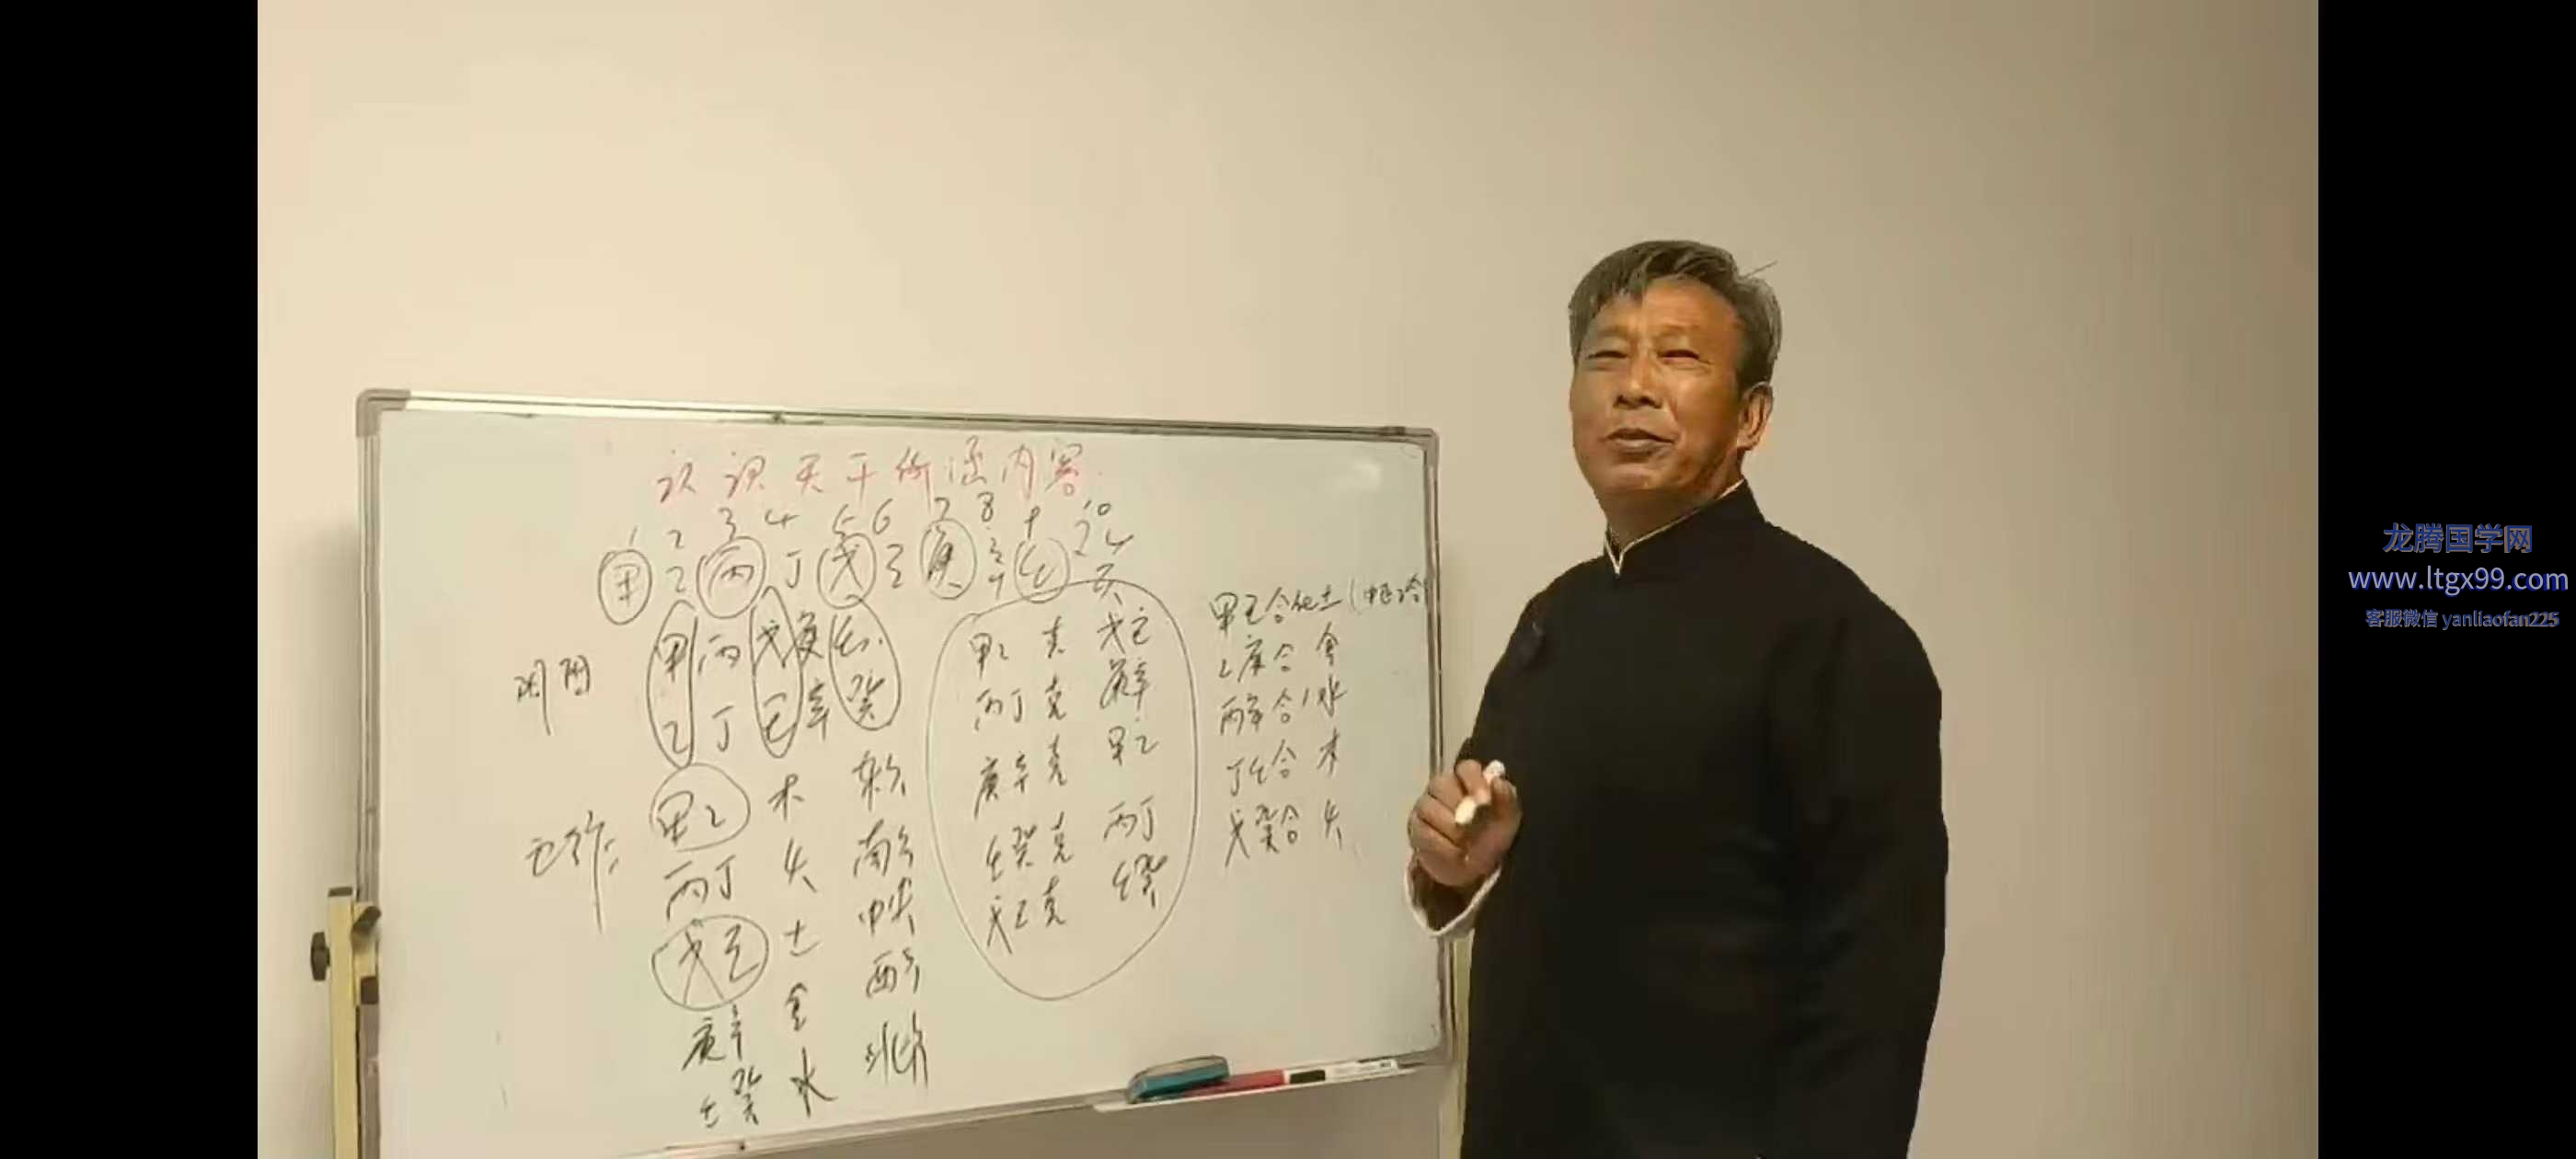 认识天干所涵内容
1 2 3 4 5 6 7 8 9 10
甲 乙 丙 丁 戊 己 庚 辛 壬 癸
阴阳
甲 丙 戊 庚 壬
乙 丁 己 辛 癸
甲乙 木 东方
丙丁 火 南方
戊己 土 中央
庚辛 金 西方
壬癸 水 北方
甲乙 克 戊己
丙丁 克 庚辛
庚辛 克 甲乙
壬癸 克 丙丁
戊己 克 壬癸
甲己合化土
乙庚合 金
丙辛合 水
丁壬合 木
戊癸合 火
龙腾国学网
www.ltgx99.com
客服微信 yanliaofan225